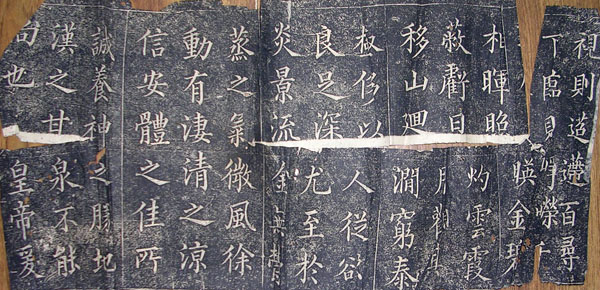 視則迢遰百尋
下臨則崢嶸千
映金碧
相暉照灼雲霞
蔽虧日月觀其
移山迴澗窮泰
極侈以人從欲
良足深尤至於
炎景流金無鬱
蒸之氣微風徐
動有淒清之涼
信安體之佳所
誠養神之勝地
漢之甘泉不能
尚也皇帝爰